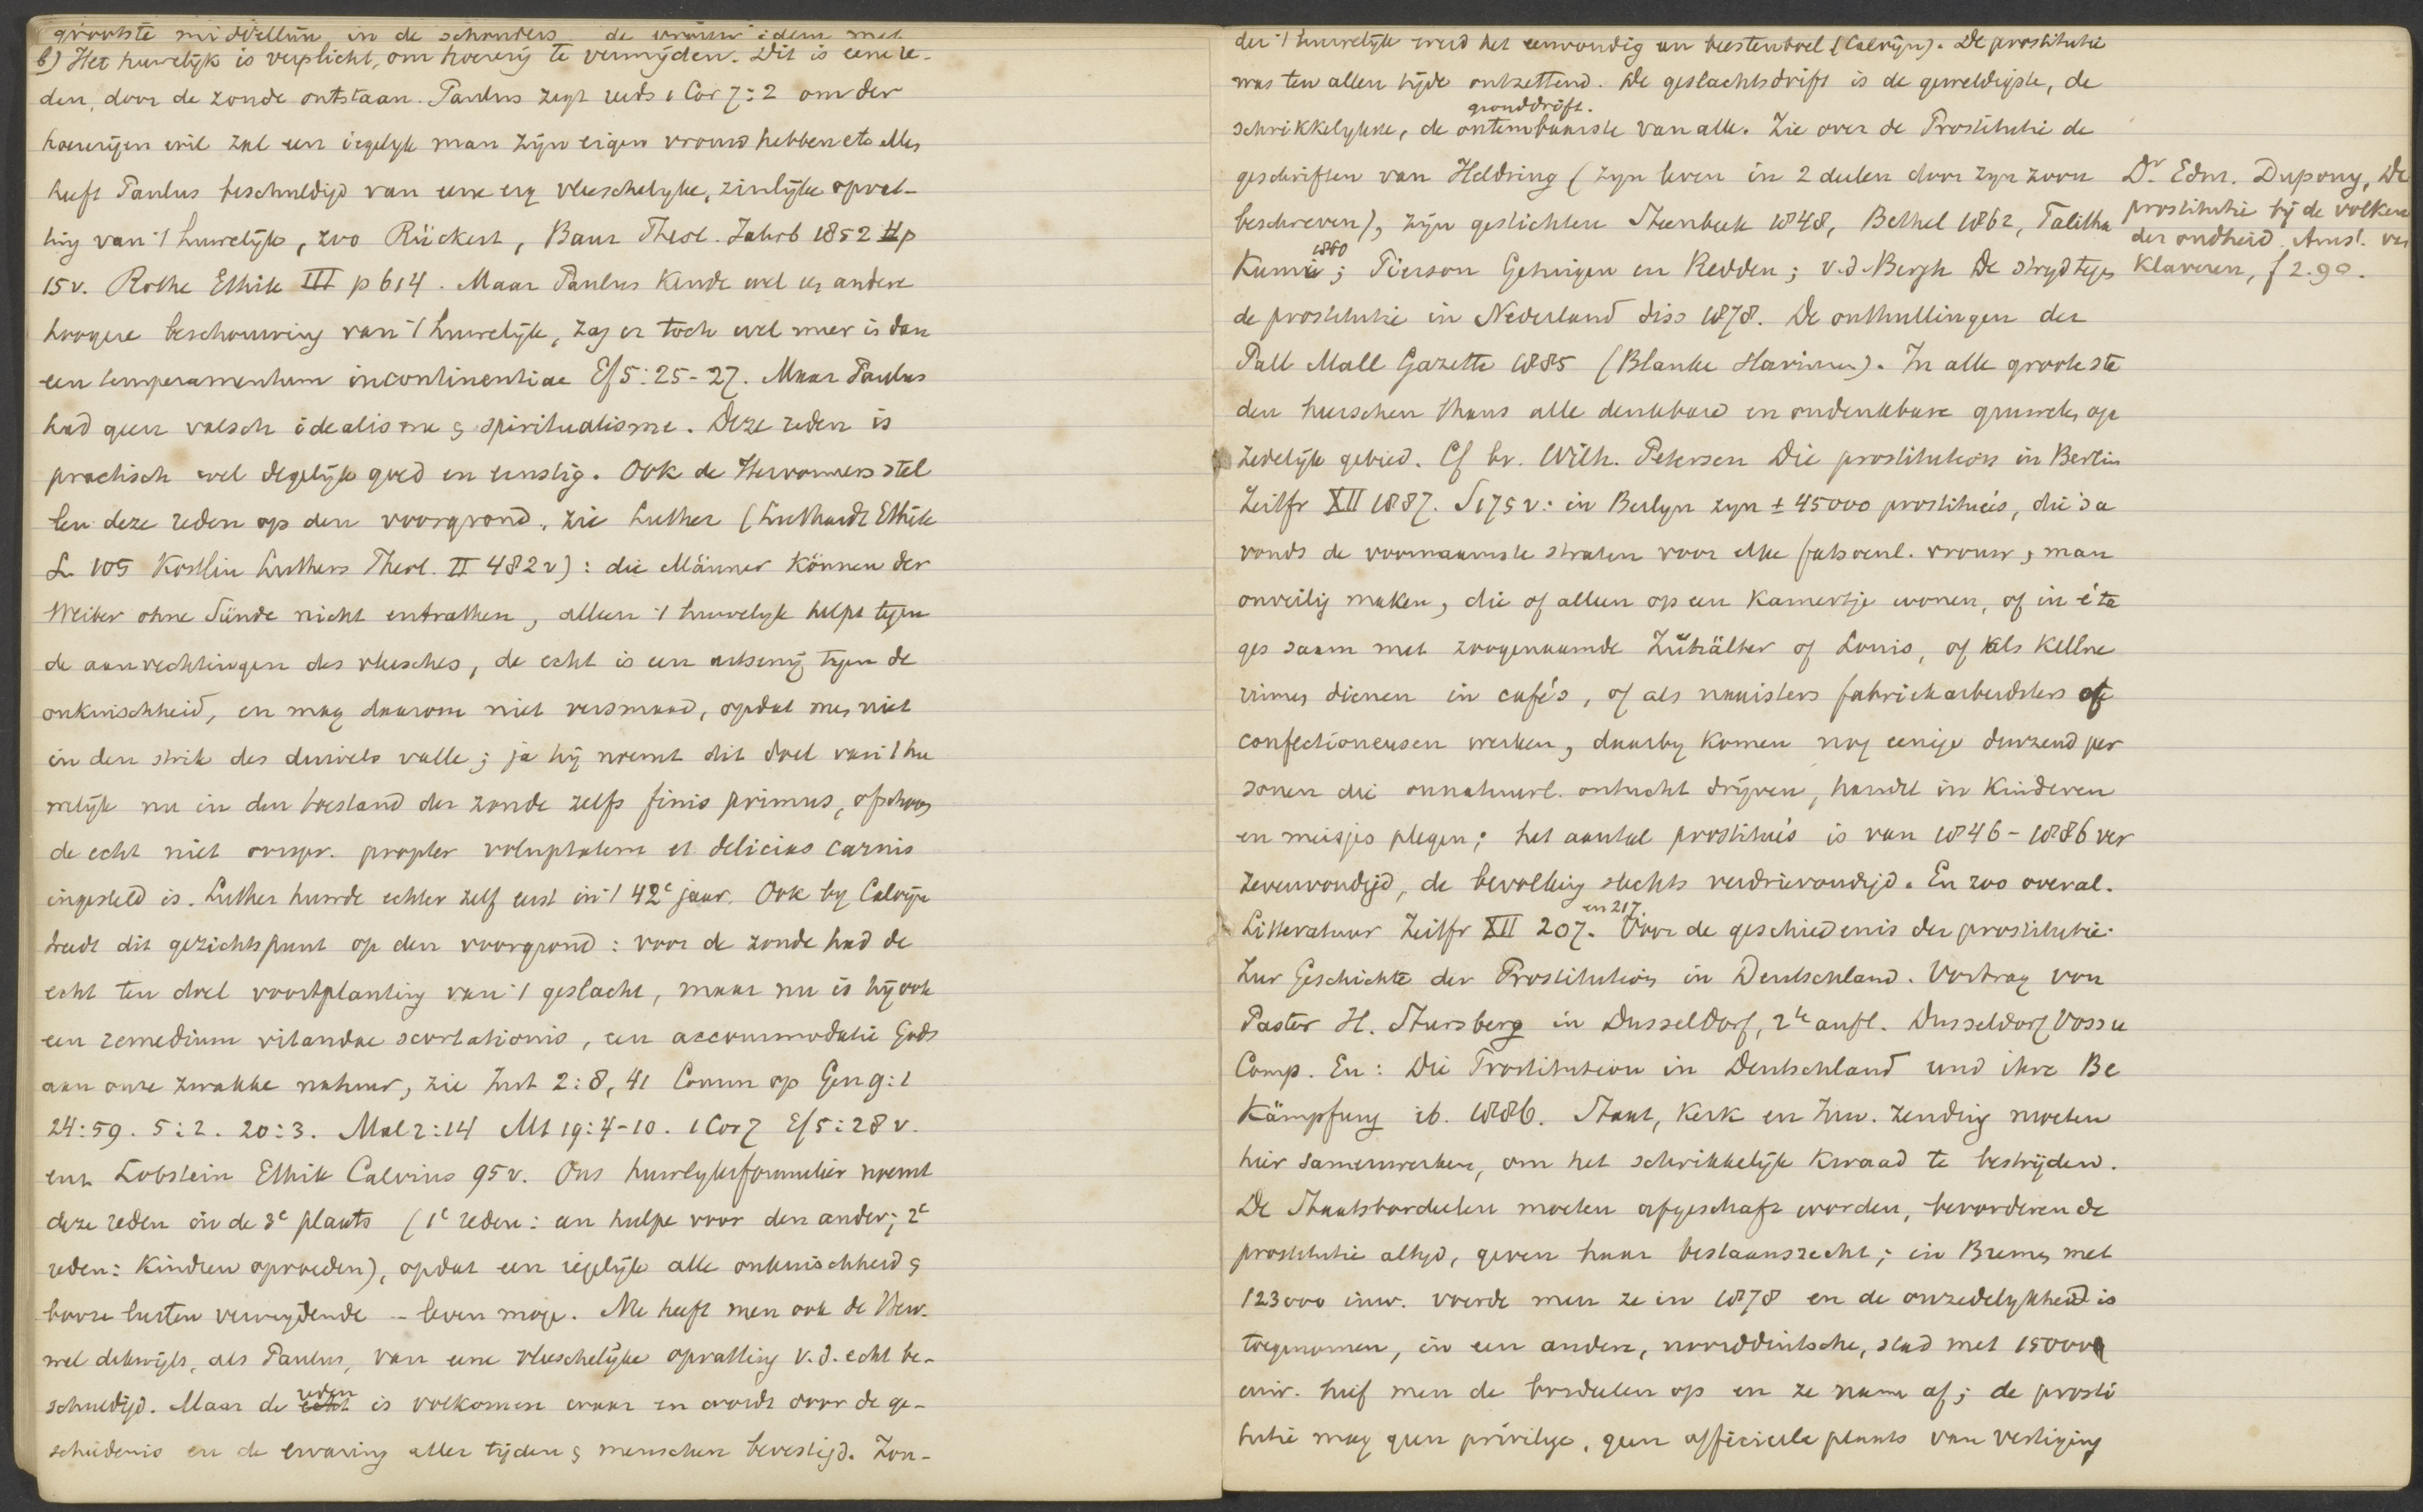 grootste middellijn in de schouders de vrouw idem met
b) Het huwelijk is verplicht, om hoererij te vermijden. Dit is eene re-
den, door de zonde ontstaan. Paulus zegt reeds 1 Cor 7:2 om der
hoererijen wil zal een iegelyk man zijn eigen vrouw hebben etc Men
heeft Paulus beschuldigd van eene erg vleeschelyke, zinlijke opvat-
ting van 't huwelijk, zoo Rückert, Baur Theol. Jahrb 1852 II p
15v. Rothe Ethik III p 614. Maar Paulus kende wel een andere
hoogere beschouwing van 't huwelijk, zag er toch wel meer in dan
een temperamentum incontinentiae Ef 5:25-27. Maar Paulus
had geen valsch idealisme & spiritualisme. Deze reden is
practisch wel degelijk goed en ernstig. Ook de Hervormers stel
len deze reden op den voorgrond, zie Luther (Luthardt Ethik
L. 105 Kostlin Luthers Theol. II 482v): die Männer können der
Weiber ohne Sünde nicht entrathen, alleen 't huwelyk helpt tegen
de aanvechtingen des vleesches, de echt is een artsenij tegen de
onkuischheid, en mag daarom niet versmaad, opdat men niet
in den strik des duivels valle; ja hij noemt dit doel van 't hu
welijk nu in den toestand der zonde zelfs finis primus, ofschoon
de echt niet oorspr. propter voluptatem et delicias carnis
ingesteld is. Luther huwde echter zelf eerst in 't 42e jaar. Ook by Calvijn
treedt dit gezichtspunt op den voorgrond: voor de zonde had de
echt ten doel voortplanting van 't geslacht, maar nu is hij ook
een remedium vitandae scortationis, een accommodatie Gods
aan onze zwakke natuur, zie Inst 2:8, 41 Comm op Gen 9:1
24:59. 5:2. 20:3. Mal 2:14 Mt 19:4-10. 1 Cor 7 Ef 5:28 v.
en Lobstein Ethik Calvins 95v. Ons huwlyksformulier noemt
deze reden in de 3e plaats (1e reden: een hulpe voor den ander; 2e
reden: kindren opvoeden), opdat een iegelijk alle onkuischheid &
booze lusten vermydende -- leven moge. Nu heeft men ook de Herv.
wel dikwijls, als Paulus, van eene vleeschelijke opvatting v.d. echt be-
schuldigd. Maar de echt reden is volkomen waar en wordt door de ge-
schiedenis en de ervaring aller tijden & menschen bevestigd. Zon-
der 't huwelijk werd het eenvoudig een beestenboel (Calvijn). De prostitutie
was ten allen tijde ontzettend. De geslachtsdrift is de geweldigste, de
gronddrift.
schrikkelykste, de ontembaarste van alle. Zie over de Prostitutie de
geschriften van Heldring (zyn leven in 2 deelen door zyn zoon
beschreven), zijn gestichten Steenbeek 1848, Bethel 1862, Talitha
1860
Kumi; Pierson Getuigen en Redden; v.d. Bergh De stryd tegen
de prostitutie in Nederland diss 1878. De onthullingen der
Pall Mall Gazette 1885 (Blanke slavinnen). In alle groote ste
den heerschen thans alle denkbare en ondenkbare gruwelen op
zedelijk gebied. Cf br. Wilh. Petersen Die prostitution in Berlin
Zeitfr XII 1887. S 175 v: in Berlyn zyn ± 45000 prostituées, die 's a
vonds de voornaamste straten voor elke fatsoenl. vrouw & man
onveilig maken, die of alleen op een kamertje wonen, of in éta
ges saam met zoogenaamde Zuhälter of Louis, of als Kellne
rinnen dienen in café's, of als naaisters fabriekarbeidsters of
confectioneusen werken, daarby komen nog eenige duizend per
sonen die onnatuurl. ontucht drijven, handel in kinderen
en meisjes plegen; het aantal prostituées is van 1846-1886 ver
zevenvoudigd, de bevolking slechts verdrievoudigd. En zoo overal.
en 217.
Litteratuur Zeitfr XII 207. Voor de geschiedenis der prostitutie:
Zur Geschichte der Prostitution in Deutschland. Vortrag von
Pastor H. Stursberg in Dusseldorf, 2te aufl. Dusseldorf Voss u
Comp. En: Die Prostitution in Deutschland und ihre Be
kämpfung ib. 1886. Staat, Kerk en Inw. zending moeten
hier samenwerken, om het schrikkelijk kwaad te bestrijden.
De Staatsbordeelen moeten afgeschaft worden, bevorderen de
prostitutie altyd, geven haar bestaansrecht; in Bremen met
123000 inw. voerde men ze in 1878 en de onzedelykheid is
toegenomen, in een andere, noordduitsche, stad met 150000
inw. hief men de bordeelen op en ze nam af; de prosti
tutie mag geen privilege, geen officieele plaats van vestiging
Dr Edm. Dupouy, De
prostitutie bij de volken
der oudheid. Amst. van
Klaveren, f 2.90.